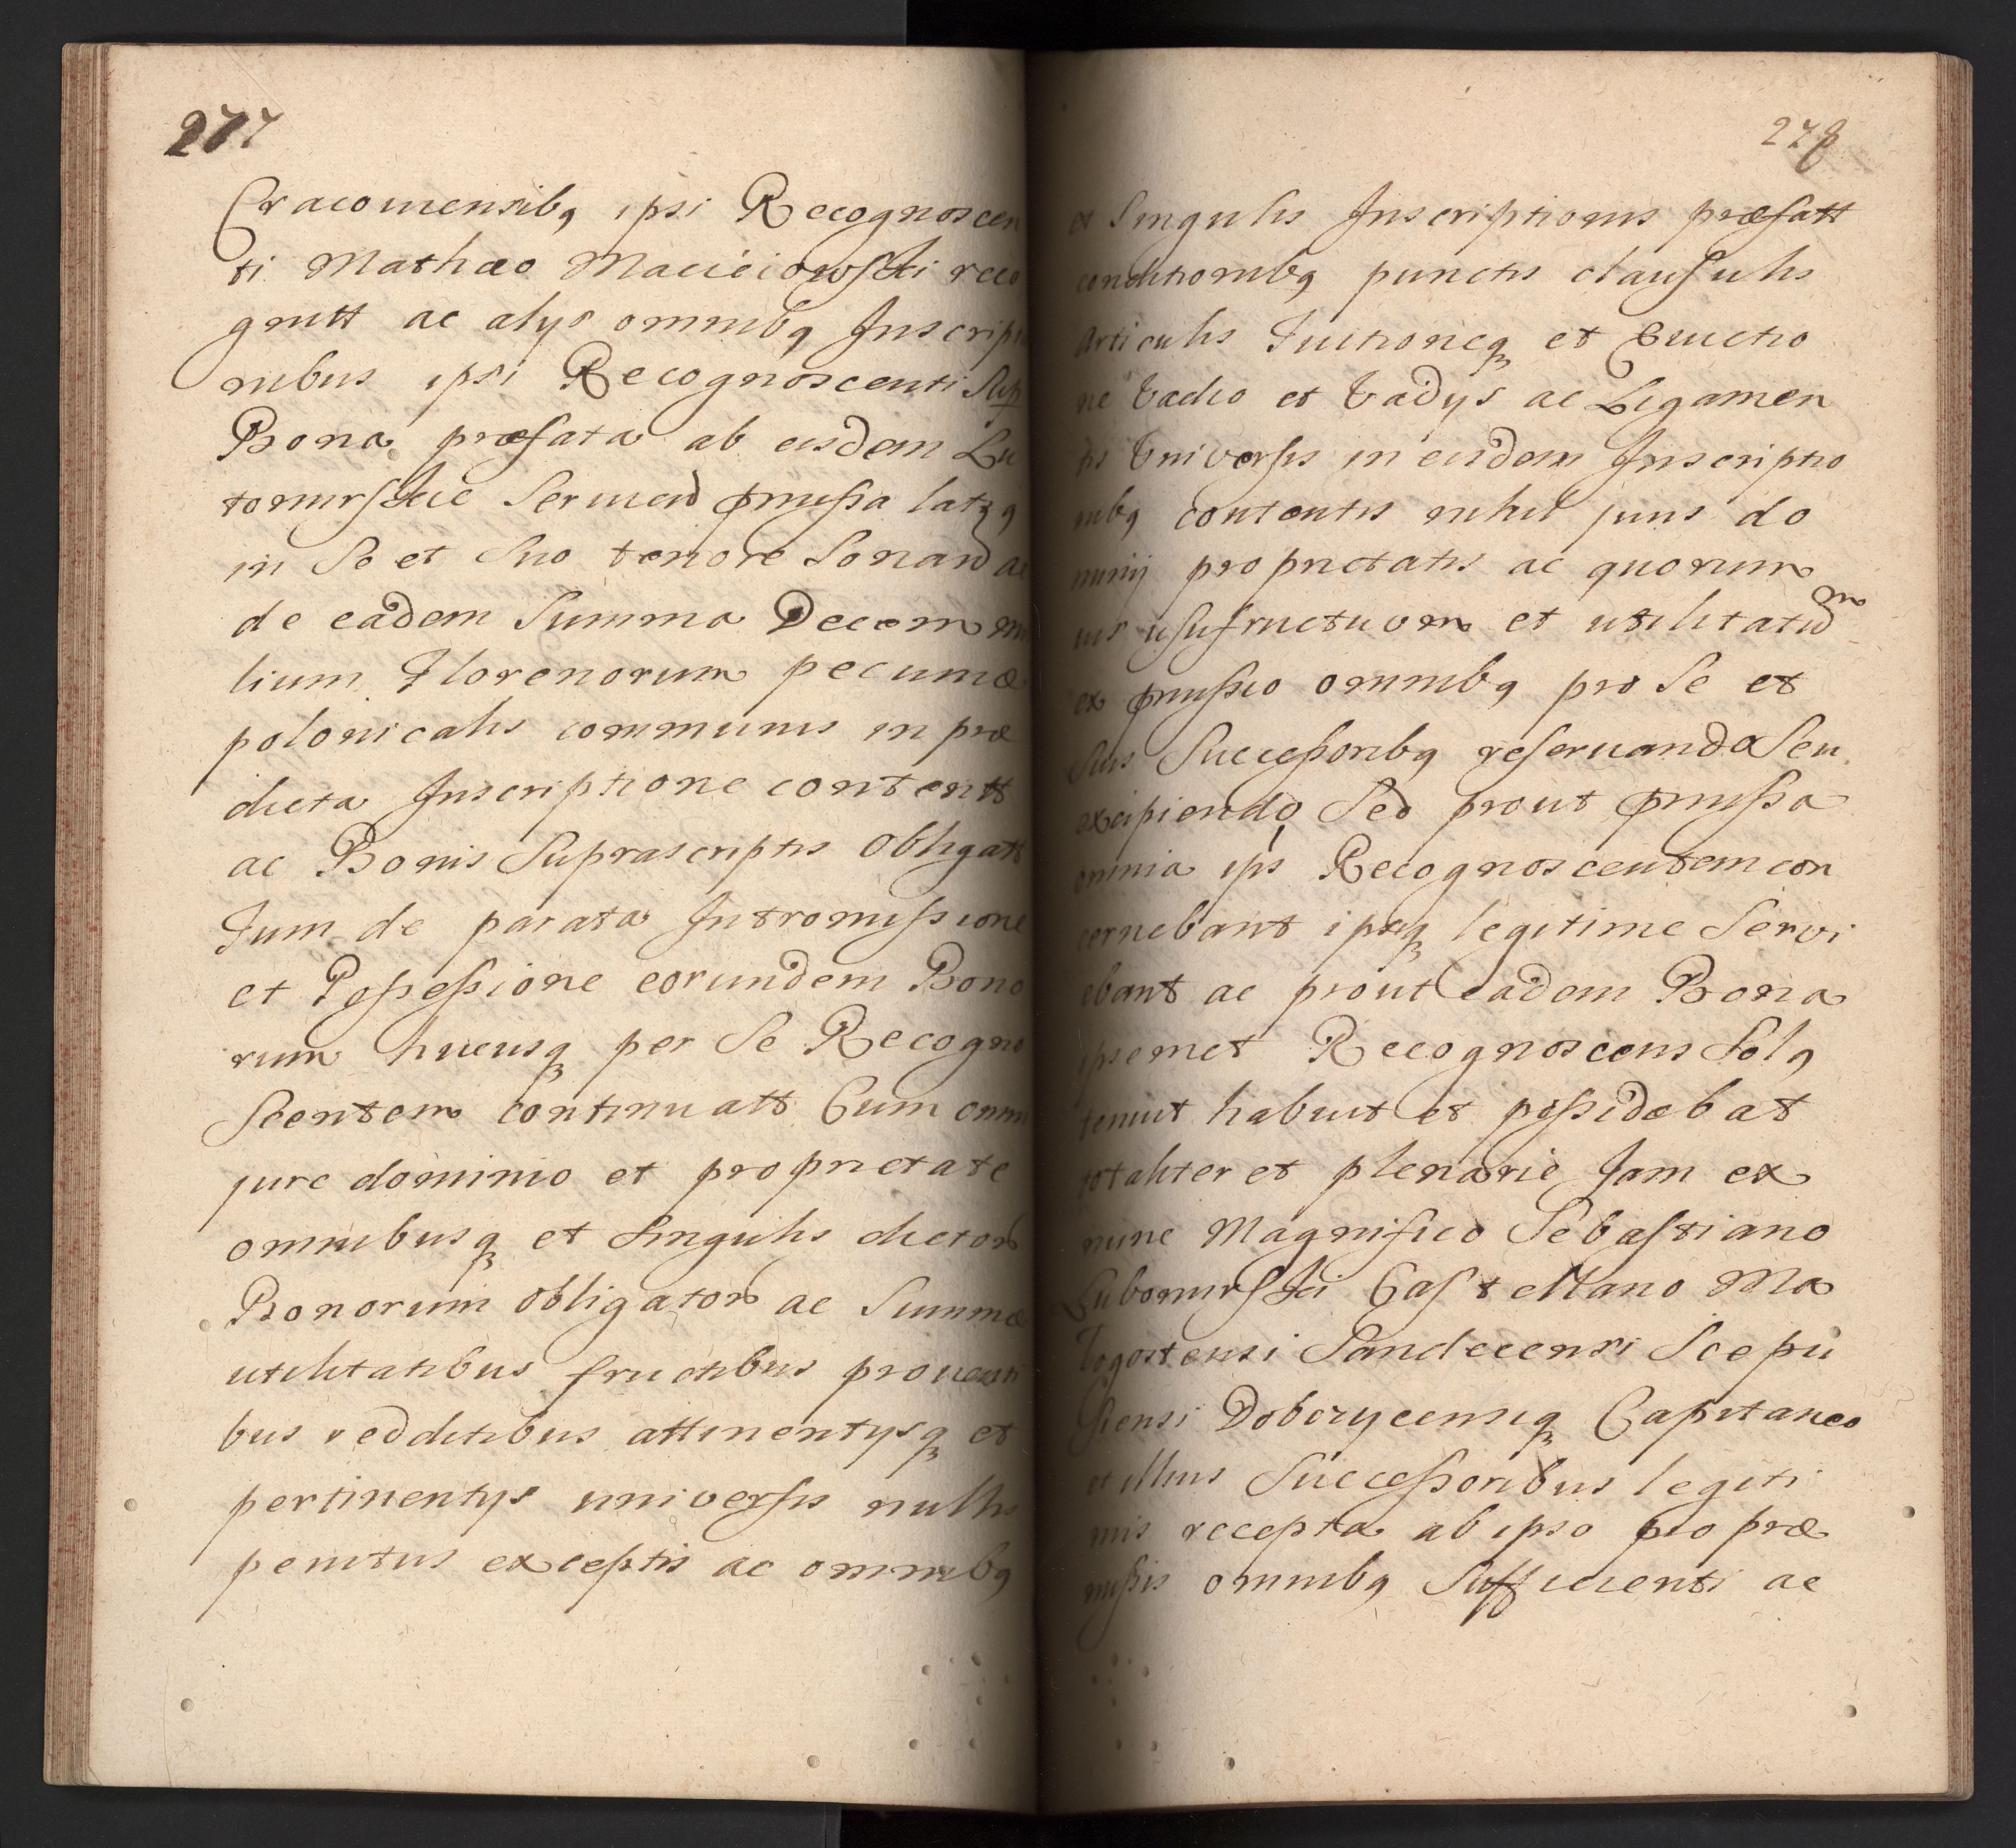 277
Cracouiensibq ipsi Recognoscen
ti Mathæo Macieiowski reco
gnitt ac alys omnibq Inscriptio
nibus ipsi Recognoscenti Sup
Bona præfata ab eisdem Lu
tomirskie Seruien
in Se et Suo tenore Sonan ac
de eadem Summa Decem mi
lium Florenorum pecuniæ
polonicalis communis in præ
dicta Inscriptione contentt
ac Bonis Suprascriptis Obligatt
Tum de parata Intromissione
et Possessione eorundem Bono
rum hucusq per Se Recogno
Scentem continuatt Cum omni
jure dominio et proprietate
omnibusq et Singulis dictor
Bonorum obligator ac Summæ
utilitatibus fructibus prouenti
bus redditibus attinentysq et
pertinentys universis nullis
penitus exceptis ac omnibq
278
et Singulis Inscriptionis præfatt
conditionibq punctis clausulis
Articulis Tuitioneq et Euictio
ne Vadio et Vadys ac Ligamen
tis Universis in eisdem Inscriptio
nibq contentis nihil juris do
minij proprietatis ac quorum
uis usufructuum et utilitatu
ex pmissio omnibq pro Se et
Suis Successoribq reservanda Seu
excipiendo Sed prout pmissa
omnia ips Recognoscentem con
cernebant ipsiq legitime Servi
ebant ac prout eadem Bona
ipsemet Recognoscens Solq
tenuit habuit et possidebat
totaliter et plenarie Jam ex
nunc Magnifico Sebastiano
Lubomirski Castellano Ma
logostensi Sandecensi Scepu
siensi Dobczycensiq Capitaneo
et illius Successoribus legiti
mis recepta ab ipso pro præ
missis omnibq Sufficienti ac